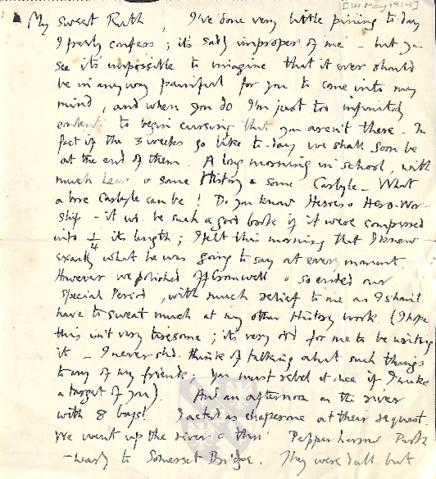 [14 May 1914]
My sweet Ruth, I've done very little pining to day
I freely confess; it's sadly improper of me – but you
see it's impossible to imagine that it ever should
be in any way painful for you to come into my
mind, and when you do I'm just too infinitely
content to begin cursing that you aren't there. In
fact if the 3 weeks go like to-day we shall soon be
at the end of them. A long morning in school, with
much & some History & some Carlyle – What
a bore Carlyle can be! Do you know Heroes & Hero-Wor-
ship – it wd. be such a good book if it were compressed
into 1/4 its length; I felt this morning that I knew
exactly what he was going to say at every moment
However we polished off Cromwell & so ended our
Special Period, with much relief to me as I shan't
have to sweat much at any other History work (I hope
this isn't very tiresome; it's very odd for me to be writing
it – I never shd. think of talking about such things
to any of my friends; you must rebel at once if I make
a target of you). And an afternoon on the river
with 8 boys! I acted as chaperone at their request.
We went up the river & thro' Pepperharrow Park
– nearly to Somerset Bridge. They were dull but